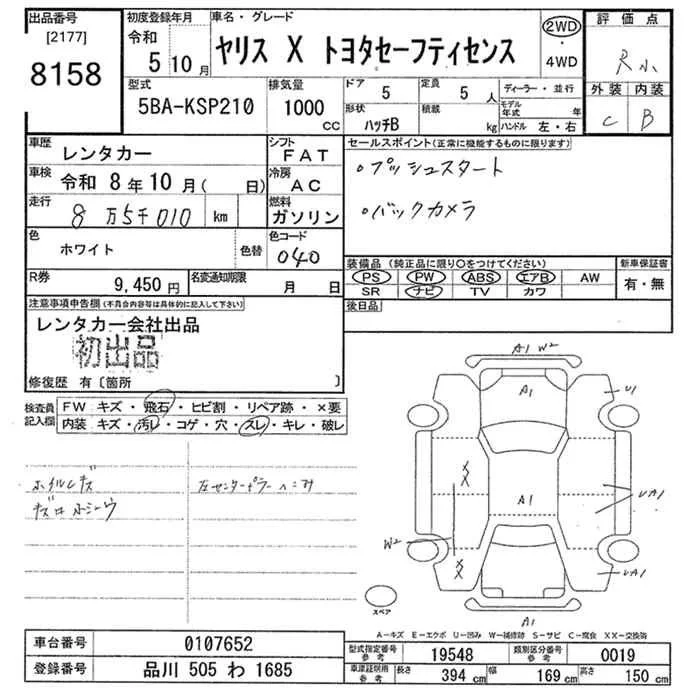 出品番号 [2177] 8158
初度登録年月 令和 5 10月
車名・グレード ヤリス X トヨタセーフティセンス
2WD・4WD
評価点
外装 内装
C B
型式 5BA-KSP210
排気量 1000 cc
ドア 5
定員 5 人
形状 ハッチB
積載 kg
ディーラー・並行
モデル年式 年
ハンドル 左・右
車歴 レンタカー
シフト FAT
車検 令和 8年 10月( 日)
冷房 AC
走行 8万5千010 km
燃料 ガソリン
色 ホワイト 色替
色コード 040
R券 9,450円
名変通知期限 月 日
セールスポイント(正常に機能するものに限ります)
○プッシュスタート
○バックカメラ
装備品(純正品に限り○をつけてください)
PS PW ABS エアB AW
SR ナビ TV カワ
新車保証書 有・無
後日品
注意事項申告欄(不具合内容等は具体的に記入して下さい)
レンタカー会社出品
初出品
修復歴 有〔箇所 〕
検査員記入欄
FW キズ・飛石・ヒビ割・リペア跡・×要
内装 キズ・汚レ・コゲ・穴・スレ・キレ・破レ
ホイルキズ
左センターピラーヘコミ
A1 W2
A1
U1
XX
A1
UA1
W2
XX
UA1
A1
スペア
A-キズ E-エクボ U-凹み W-補修跡 S-サビ C-腐食 XX-交換済
車台番号 0107652
登録番号 品川 505 わ 1685
型式指定番号 参考 19548
類別区分番号 参考 0019
車庫証明用 参考 長さ 394 cm 幅 169 cm 高さ 150 cm